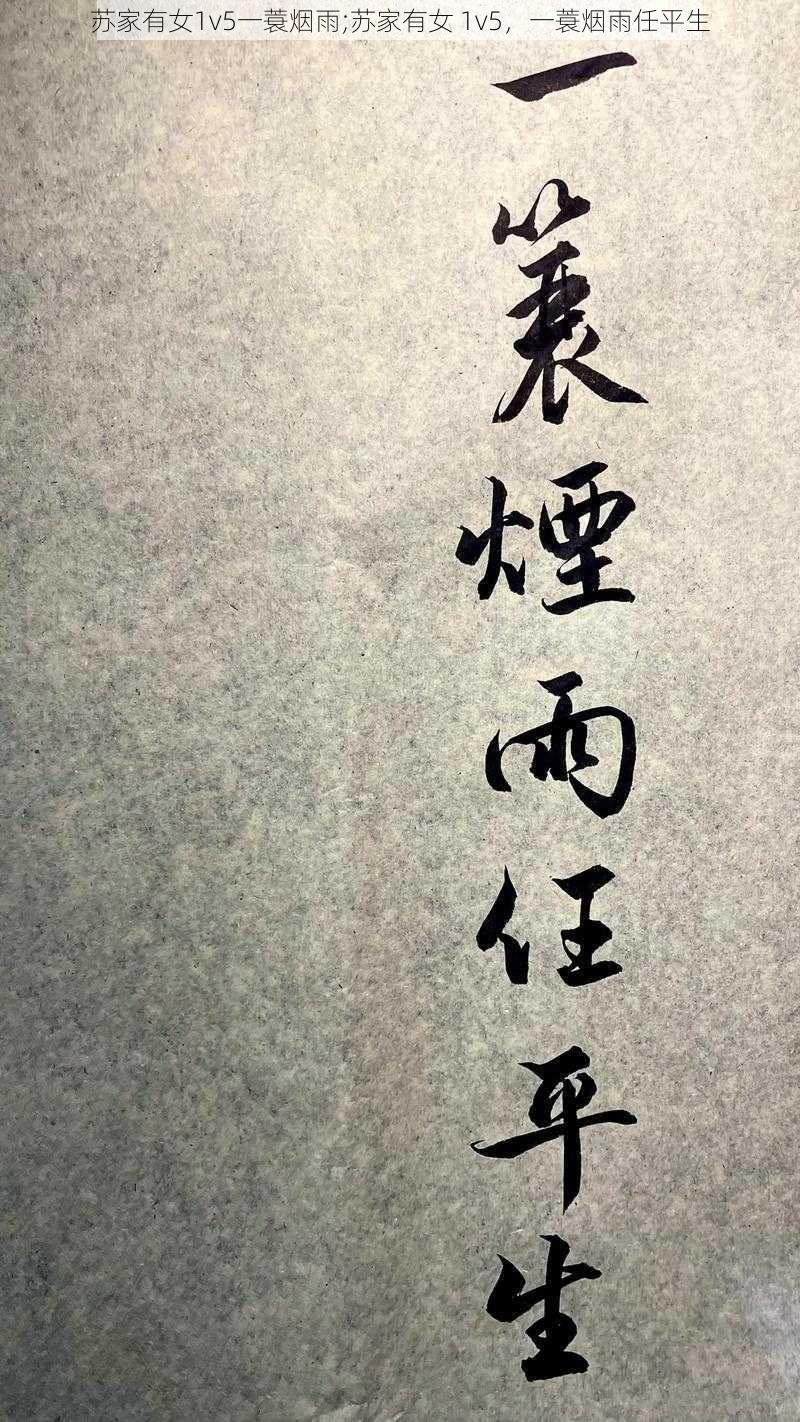 苏家有女1v5一蓑烟雨;苏家有女 1v5，一蓑烟雨任平生
一蓑煙雨任平生